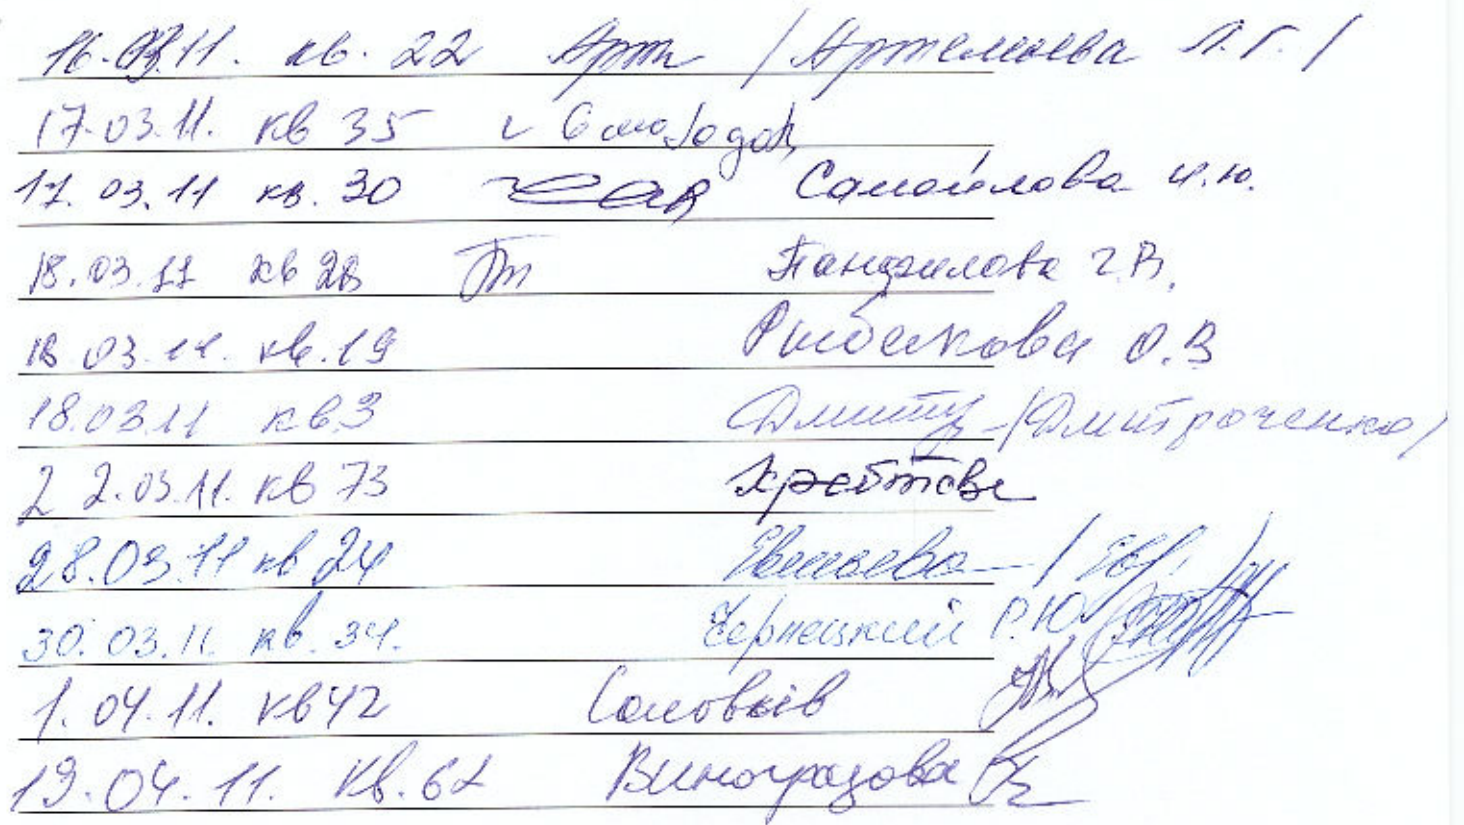 16.03.11. кв. 22 Арт / Артемьева Л.Г. /
17.03.11. кв 35
17.03.11 кв. 30 Самойлова И.Ю.
18.03.11 кв 28 Панфилова Г.В.
18.03.11. кв.19 Рыбакова О.В
18.03.11 кв.3 /Дмитроченко/
22.03.11. кв 73 Хребтова
28.03.11 кв 24 / Ев. /
30.03.11. кв. 34. Чернецкий Р.Ю
1.04.11. кв 42 Соловьёв
19.04.11. кв.62 Виноградова